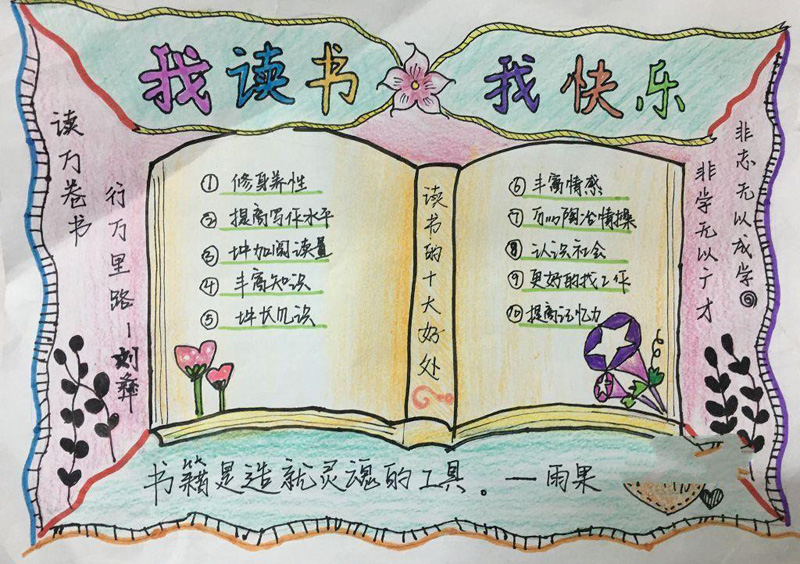 我读书 我快乐
读万卷书
行万里路—刘彝
① 修身养性
② 提高写作水平
③ 增加阅读量
④ 丰富知识
⑤ 增长见识
读书的十大好处
⑥ 丰富情感
⑦ 可以陶冶情操
⑧ 认识社会
⑨ 更好的找工作
⑩ 提高记忆力
非志无以成学
非学无以广才
书籍是造就灵魂的工具。—雨果